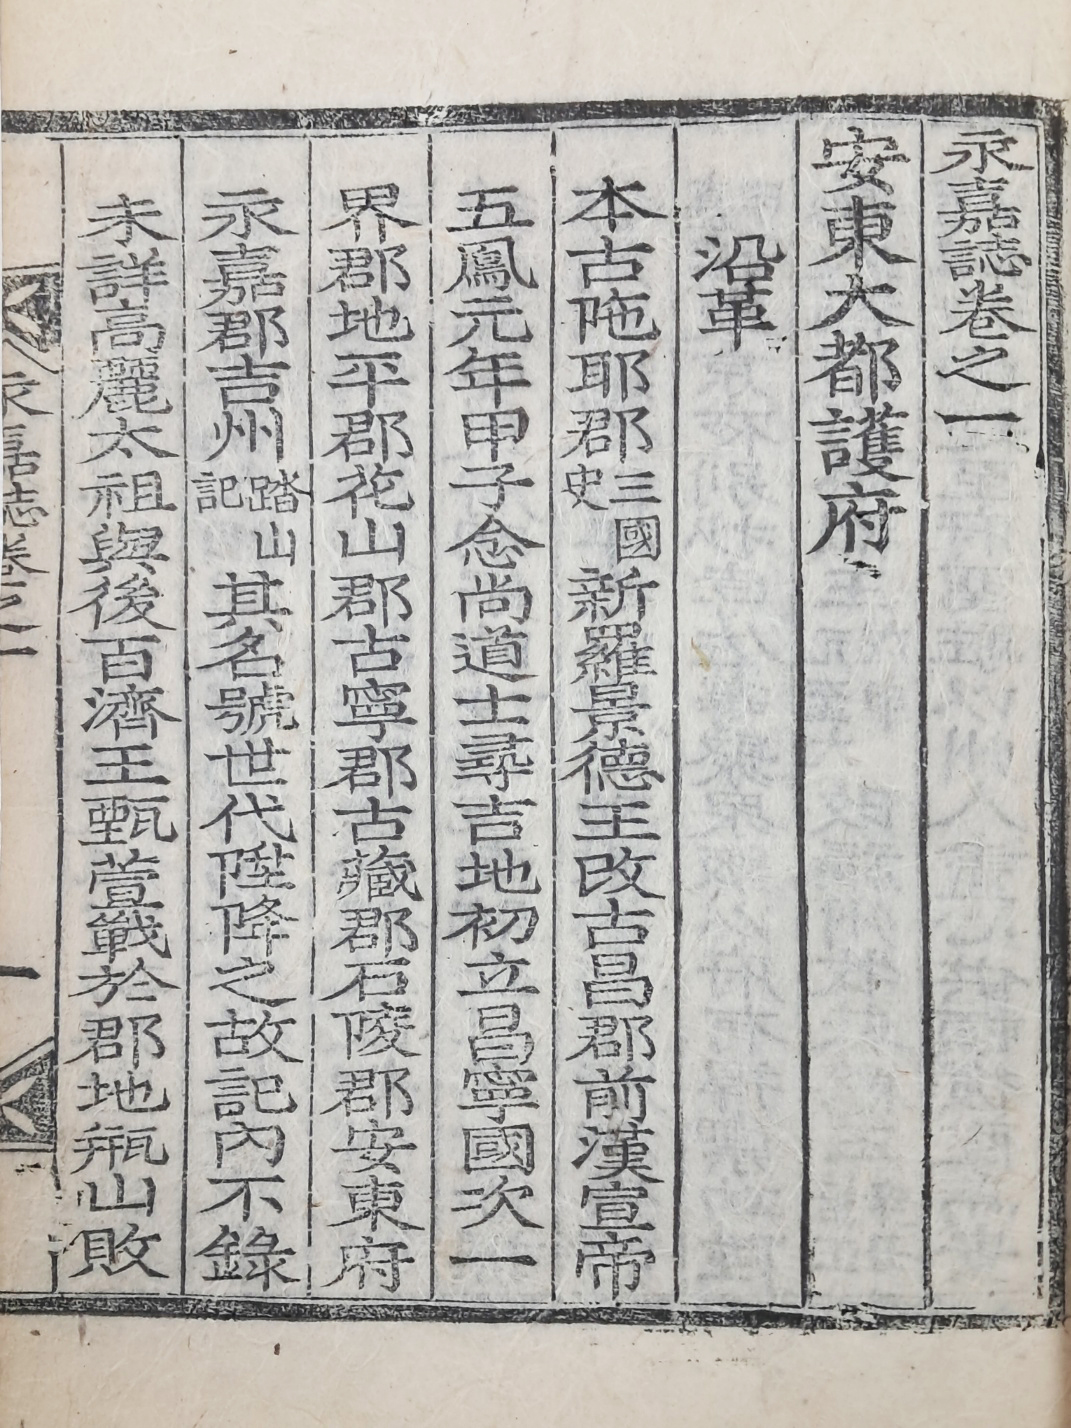 永嘉誌卷之一
安東大都護府
沿革
本古陁耶郡三國史新羅景德王改古昌郡前漢宣帝
五鳳元年甲子念尚道士尋吉地初立昌寧國次一
界郡地平郡花山郡古寧郡古藏郡石陵郡安東府
永嘉郡吉州踏山記其名號世代陞降之故記內不錄
未詳高麗太祖與後百濟王甄萱戰於郡地甁山敗
永嘉志卷之一
一